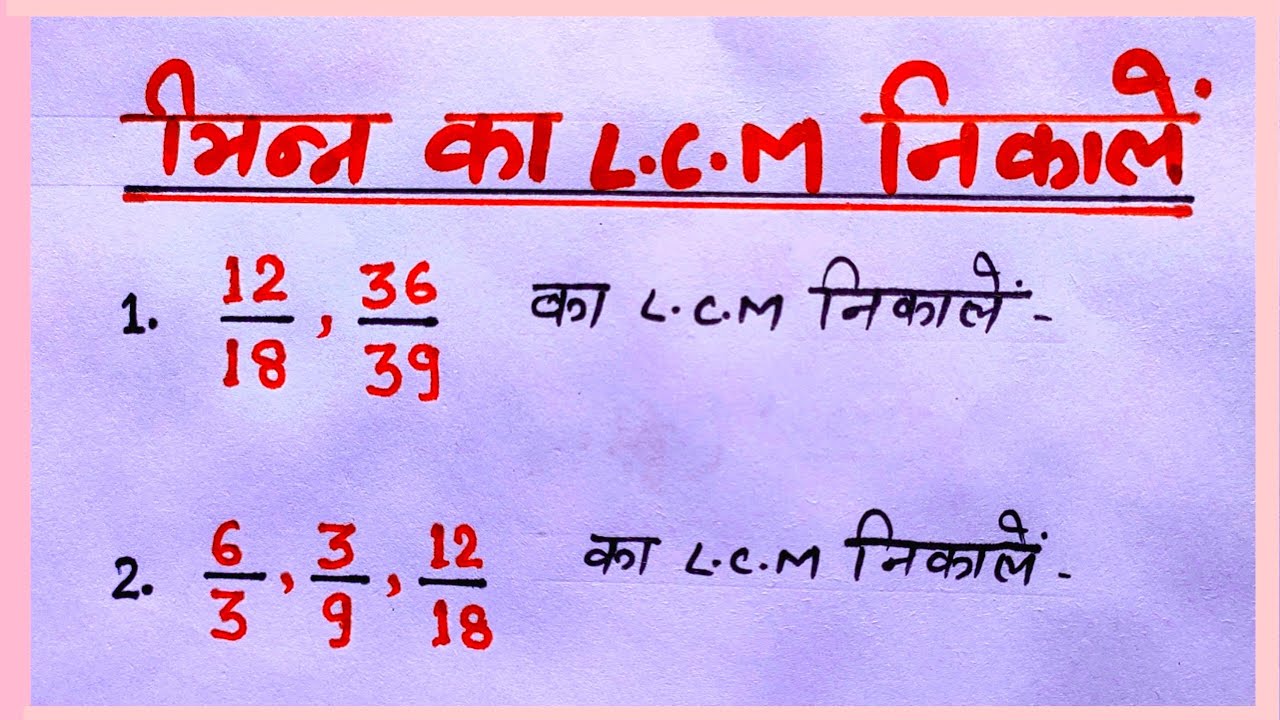 भिन्न का L.C.M निकालें
1. 12/18 , 36/39 का L.C.M निकालें -
2. 6/3 , 3/9 , 12/18 का L.C.M निकालें -